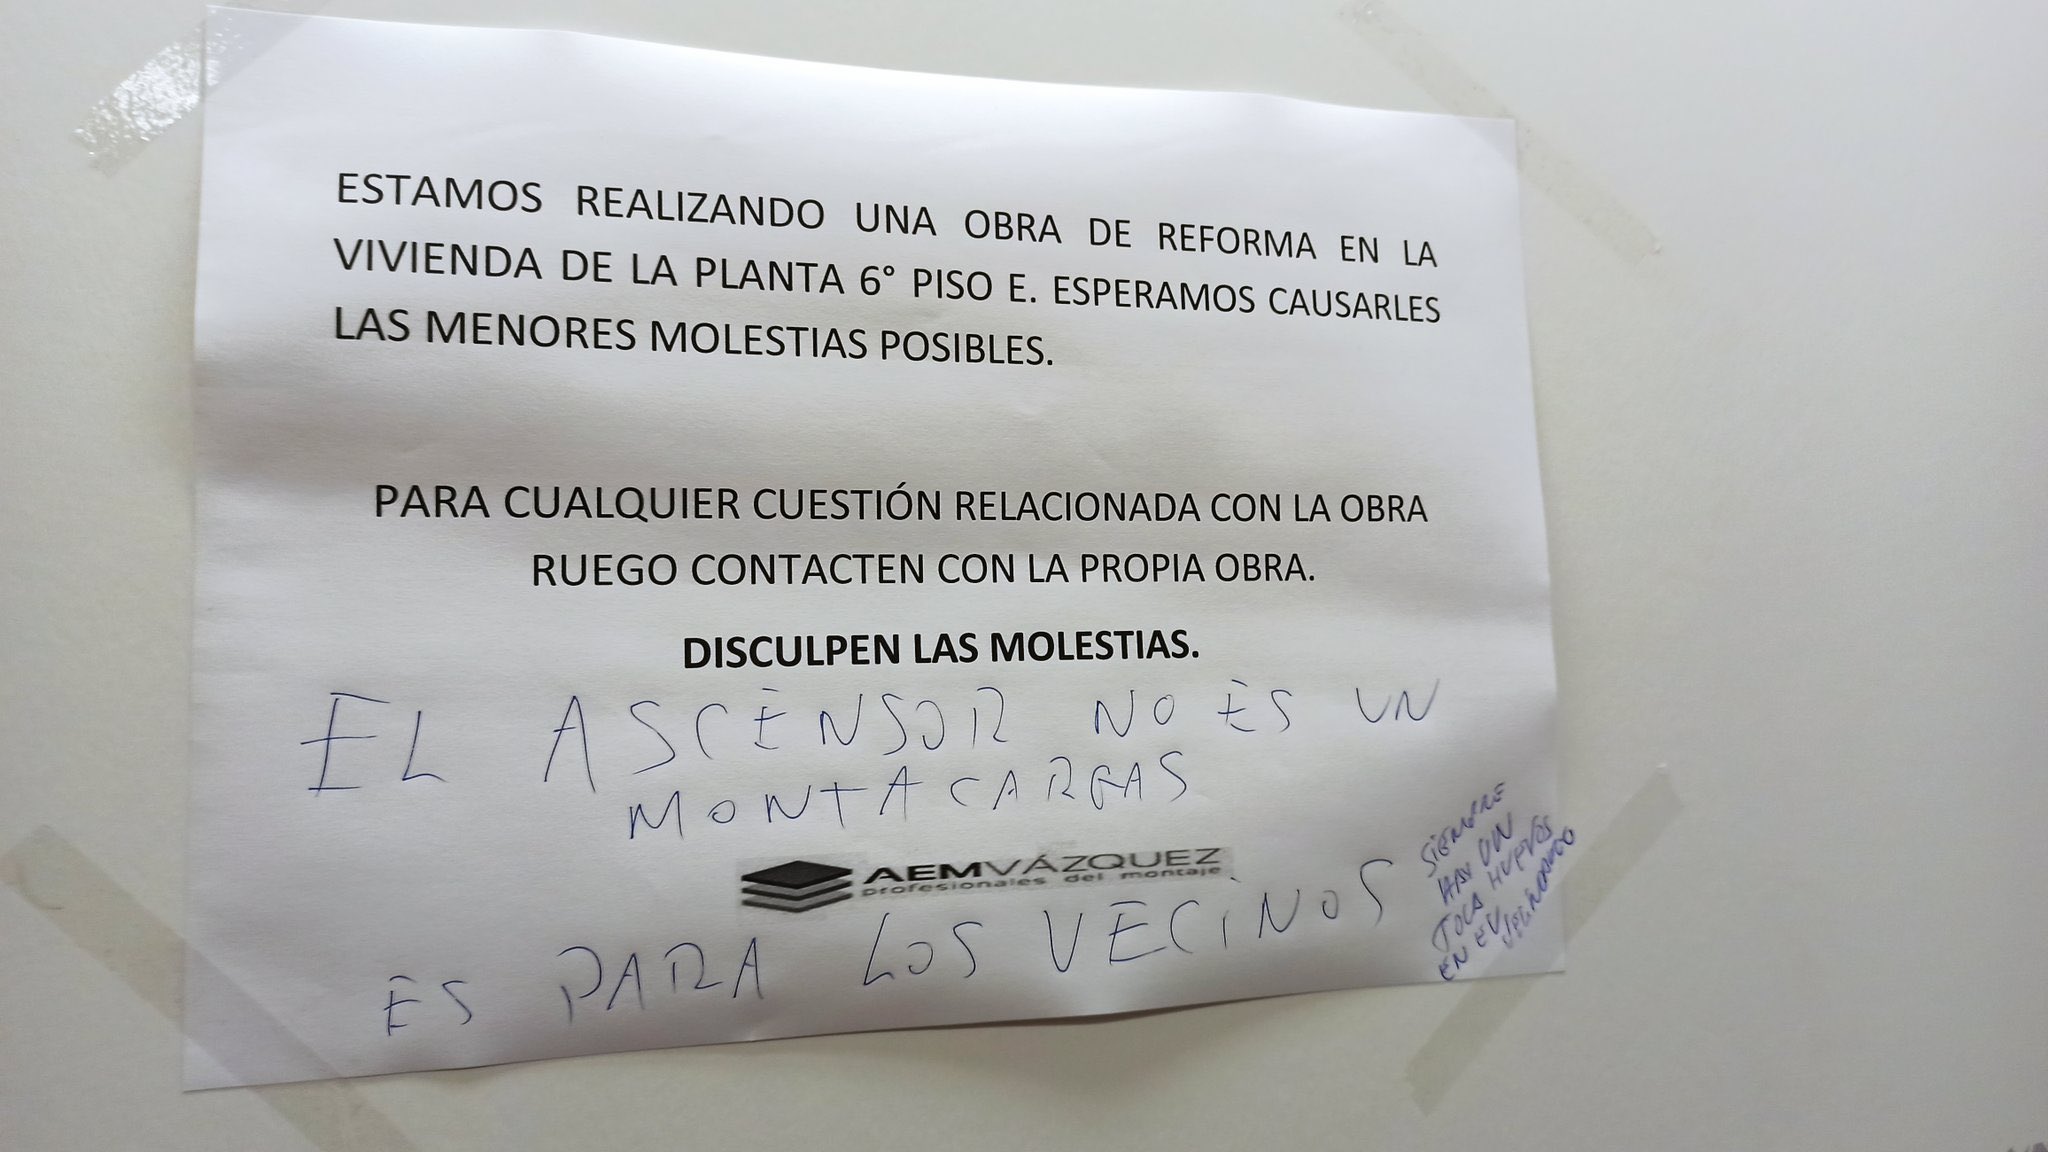 ESTAMOS REALIZANDO UNA OBRA DE REFORMA EN LA
VIVIENDA DE LA PLANTA 6° PISO E. ESPERAMOS CAUSARLES
LAS MENORES MOLESTIAS POSIBLES.
PARA CUALQUIER CUESTIÓN RELACIONADA CON LA OBRA
RUEGO CONTACTEN CON LA PROPIA OBRA.
DISCULPEN LAS MOLESTIAS.
EL ASCENSOR NO ES UN
MONTACARGAS
AEMVÁZQUEZ
profesionales del montaje
ES PARA LOS VECINOS
SIEMPRE
HAY UN
TOCA HUEVOS
EN EL
VECINDARIO